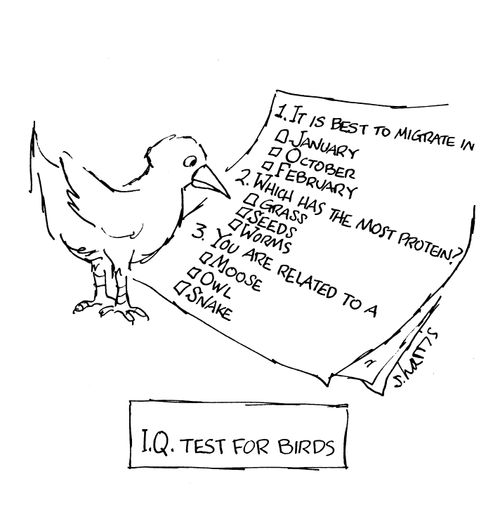 1. IT IS BEST TO MIGRATE IN
JANUARY
OCTOBER
FEBRUARY
2. WHICH HAS THE MOST PROTEIN?
GRASS
SEEDS
WORMS
3. YOU ARE RELATED TO A
MOOSE
OWL
SNAKE
S. HARRIS
I.Q. TEST FOR BIRDS